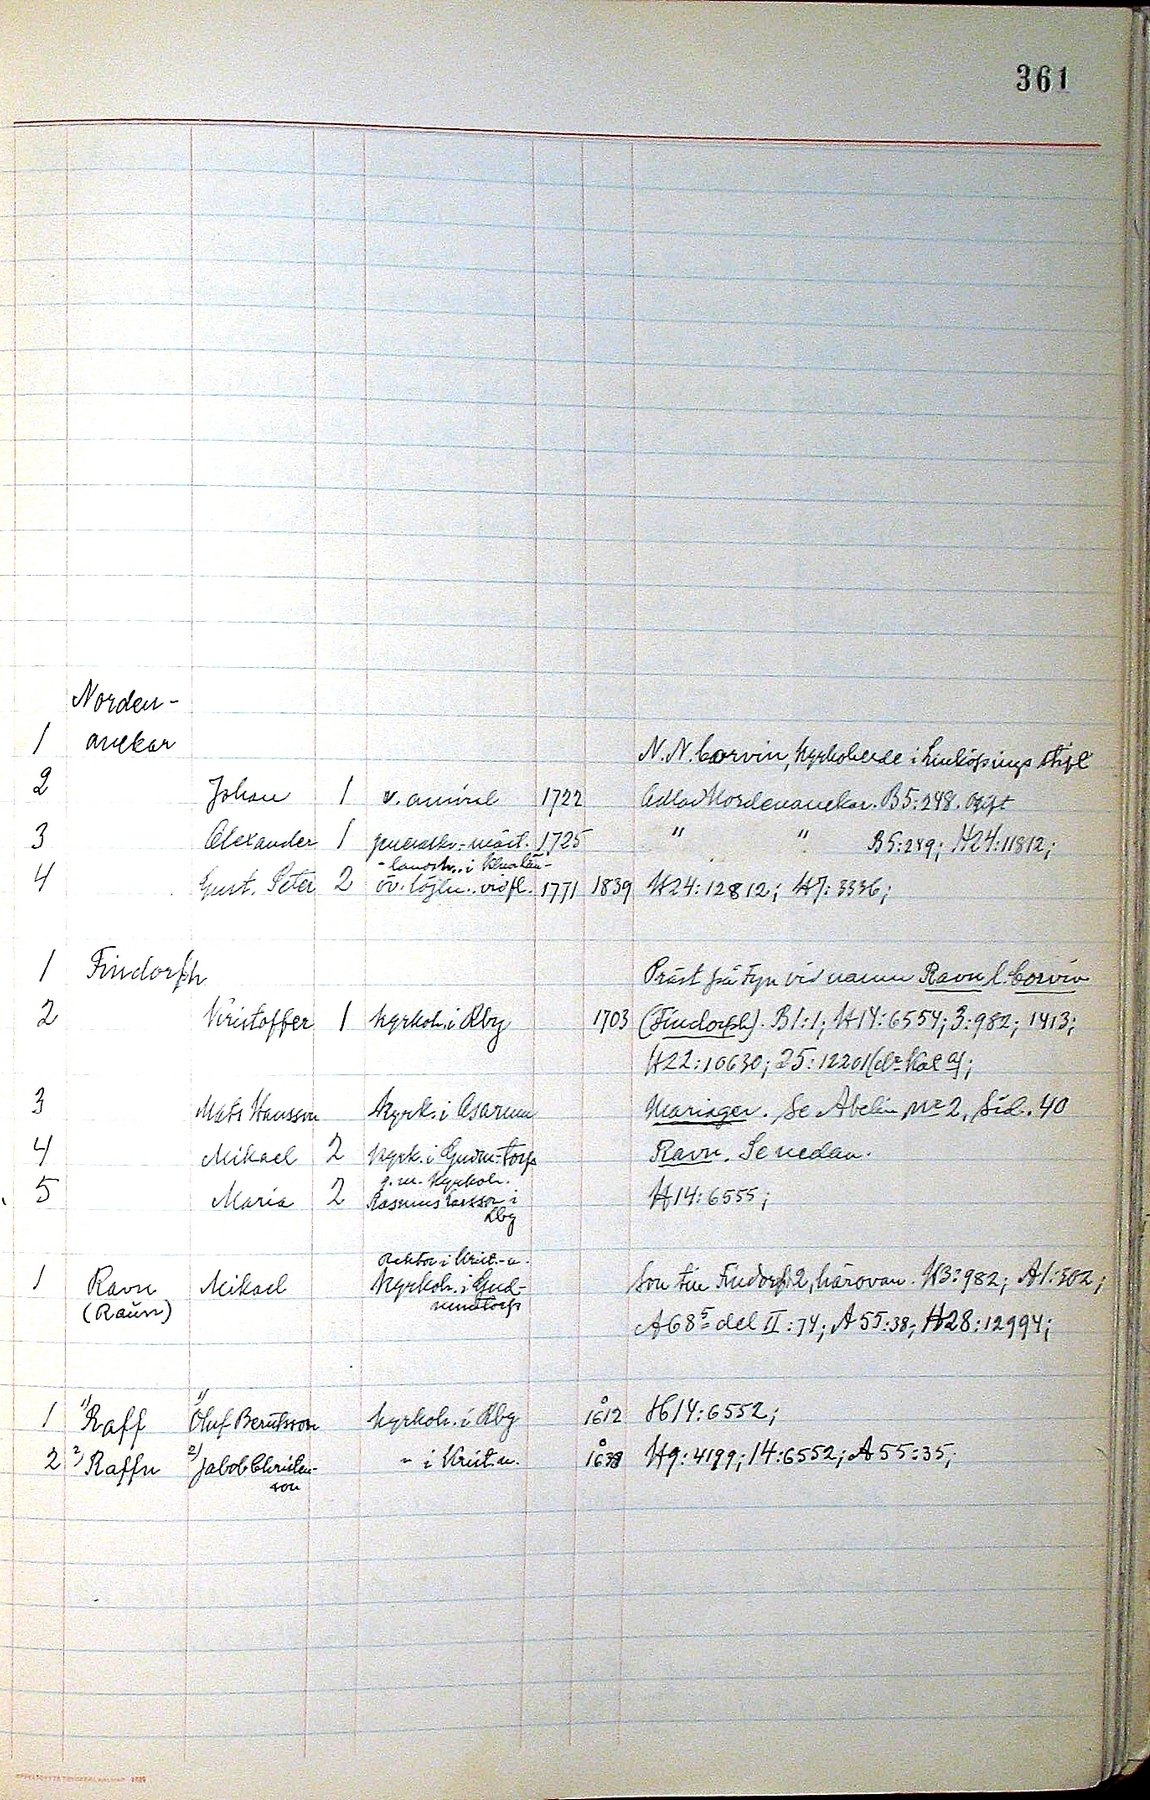 361
Norden-
1 anckar N.N. Corvin, Kyrkoherde i Linköpings stift
2 Johan 1 v. amiral 1722 Adlad Nordenanckar. B5:248. Ogift
3 Alexander 1 generalkv.-mäst. 1725 " " B5:249; H24:11812;
4 Gust. Peter 2 öv. löjtn. vid fl. 1771 1839 H24:12812; H7:3336;
1 Findorph Präst från Fyn vid namn Ravn l. Corvin
2 Kristoffer 1 Kyrkoh. i Rby 1703 (Findorph). B1:1; H14:6554; 3:982; 1413;
H22:10630; 25:12201
3 Mats Hansson Kyrk. i Asarum Mariager. Se Abelin, No 2, Sid. 40
4 Mikael 2 Kyrk. i Gudm-torp Ravn. Se nedan.
g.m. Kyrkoh.
5 Maria 2 Rasmus Larsson i H14:6555;
Rby
Rektor i Krist-a.
1 Ravn Mikael Kyrkoh. i Gud- Son till Findorph 2, härovan. H3:982; A1:302;
(Raün) mundtorp A68 5 del II:74; A55:38; H28:12994;
1 1) Raff 1) Oluf Berntsson Kyrkoh. i Rby 1612 H14:6552;
2 2) Raffn 2) Jakob Christen- " i Krist-a. 1638 H9:4199; 14:6552; A55:35;
son